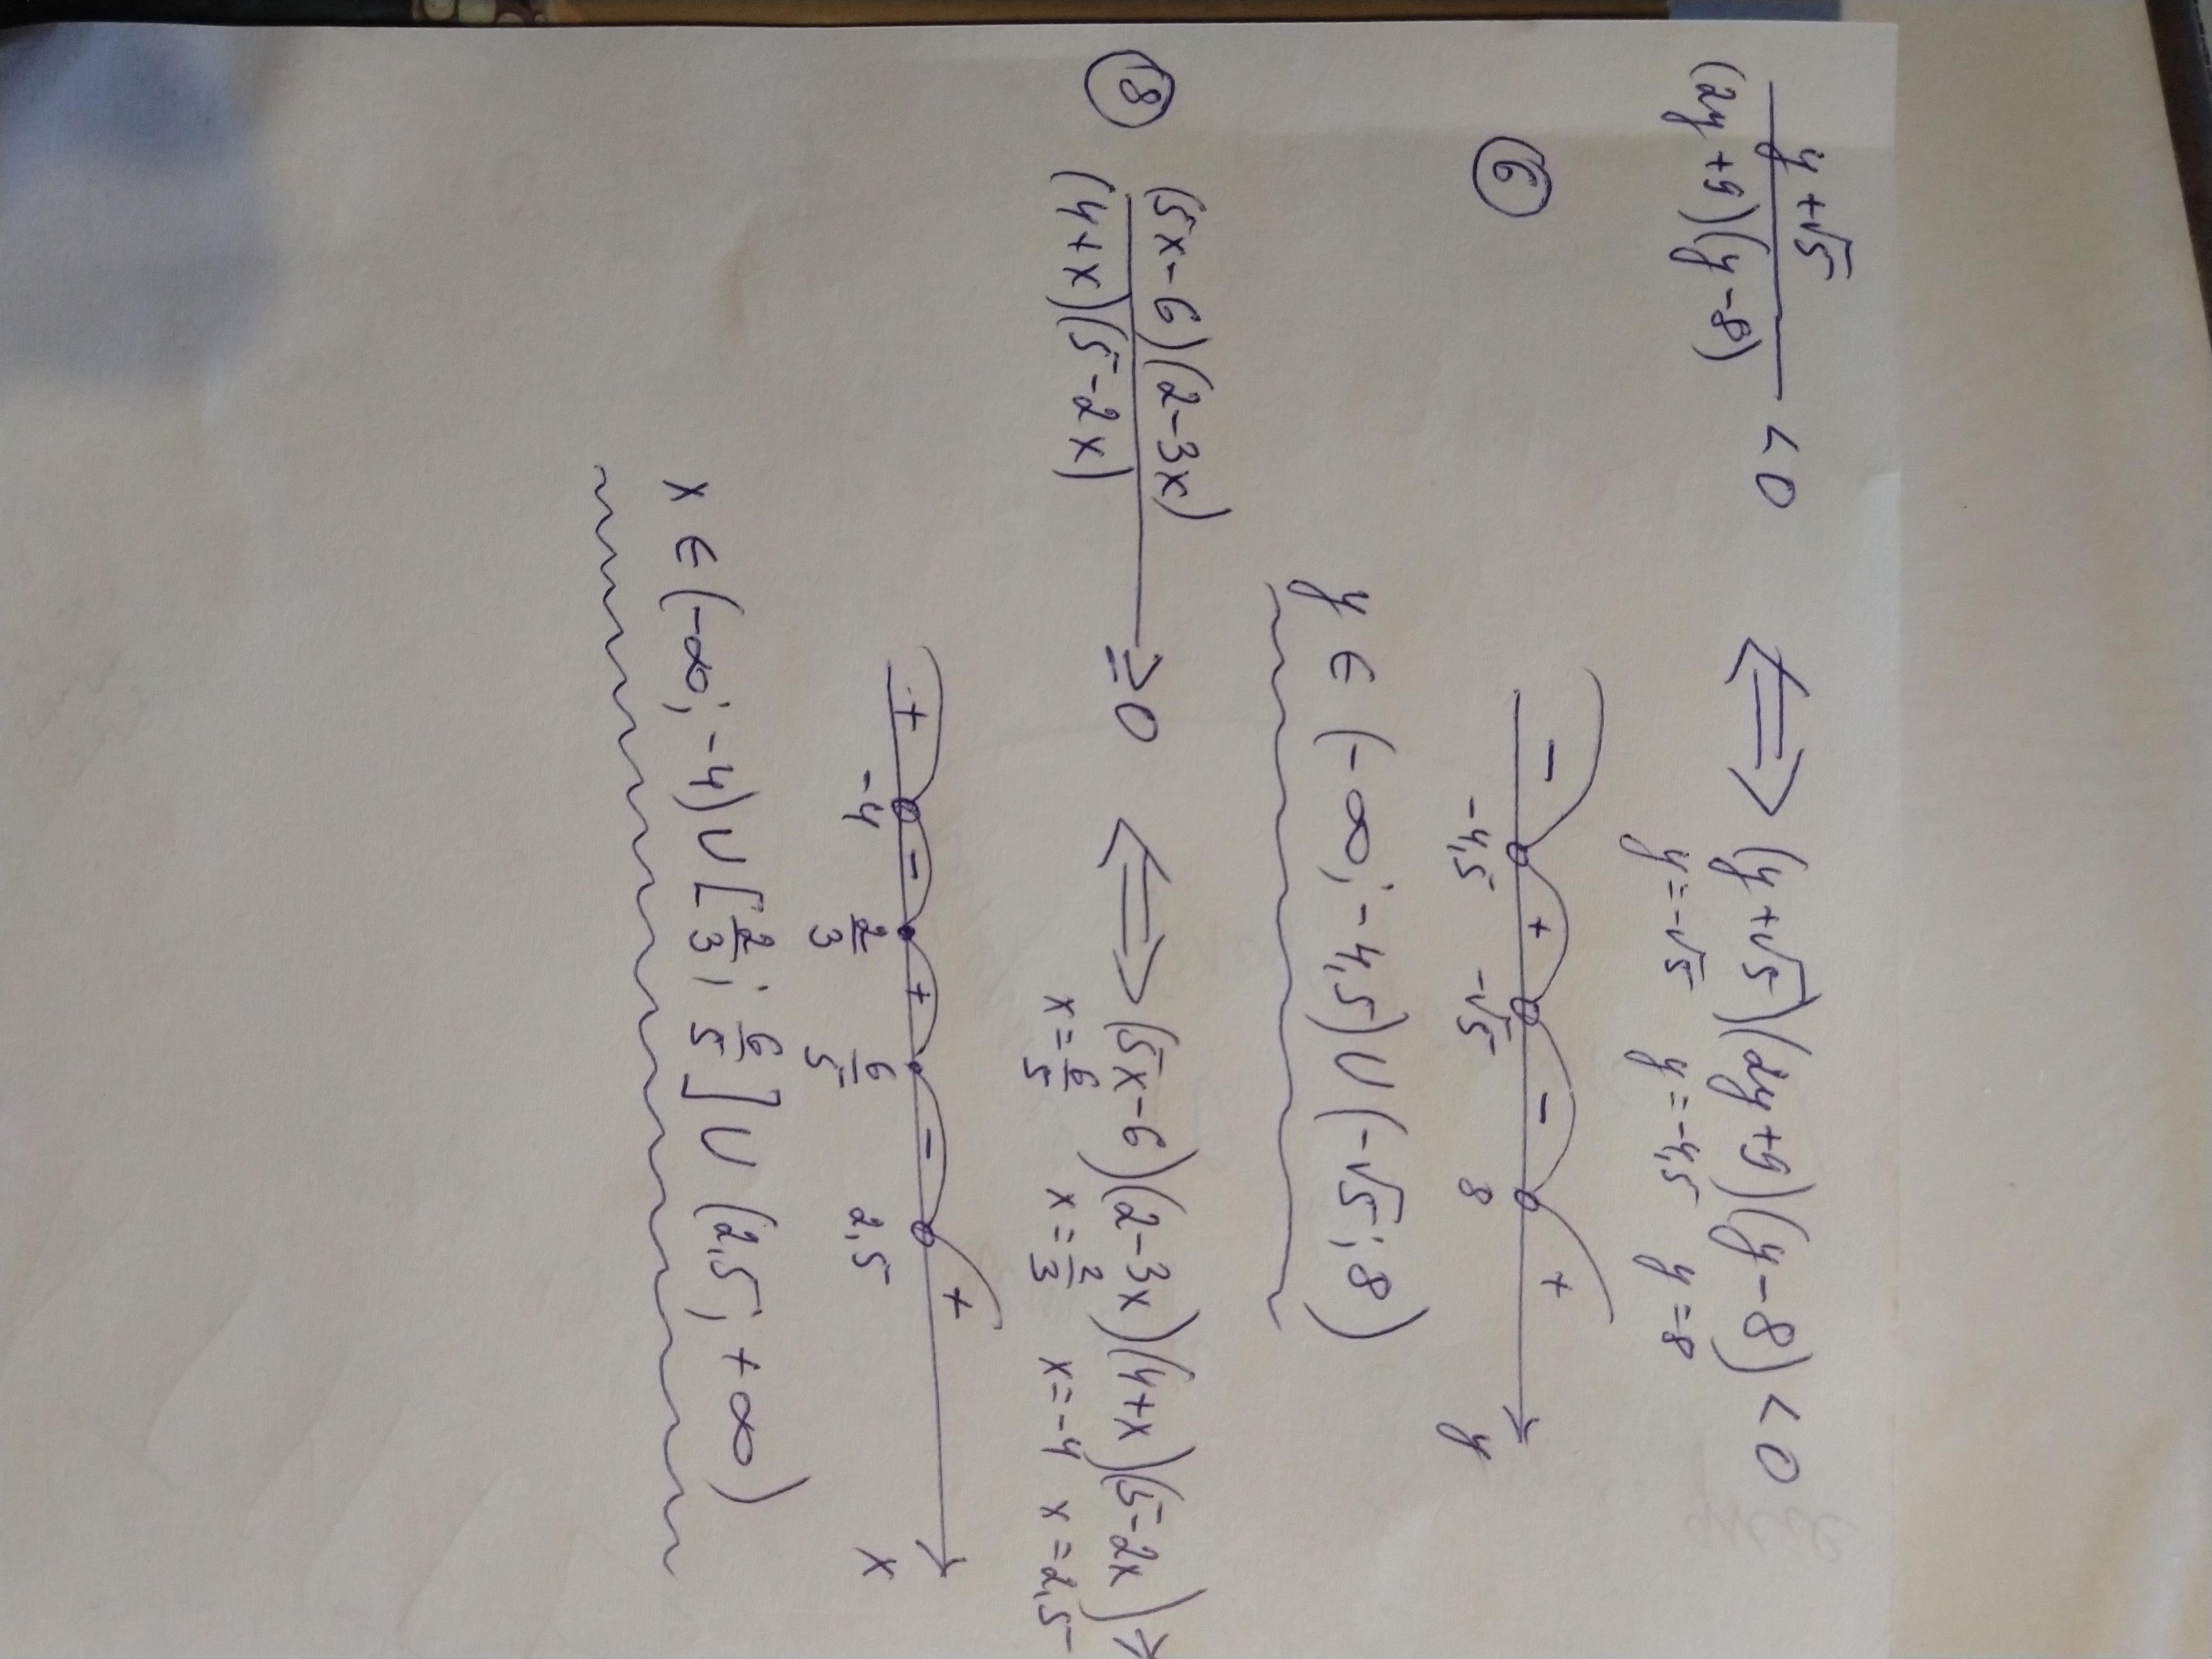 (y+√5)/((2y+9)(y-8)) < 0 ⟺ (y+√5)(2y+9)(y-8) < 0
y=-√5 y=-4,5 y=8
⑥ - + - +
-4,5 -√5 8 y
y ∈ (-∞; -4,5) U (-√5; 8)
⑧ ((5x-6)(2-3x))/((4+x)(5-2x)) ≥ 0 ⟺ (5x-6)(2-3x)(4+x)(5-2x)
x=6/5 x=2/3 x=-4 x=2,5
+ - + - +
-4 2/3 6/5 2,5 x
x ∈ (-∞; -4) U [2/3; 6/5] U (2,5; +∞)